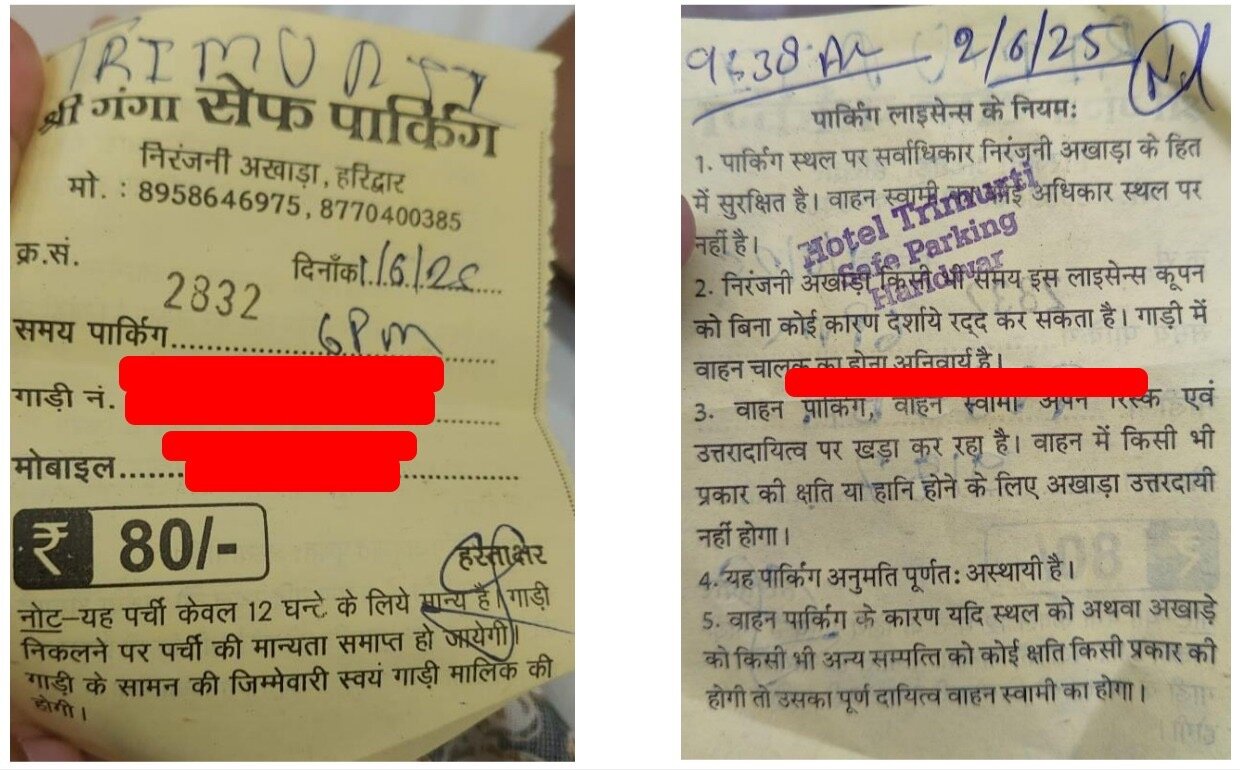 TRIMURTI
श्री गंगा सेफ पार्किंग
निरंजनी अखाड़ा, हरिद्वार
मो. : 8958646975, 8770400385
क्र.सं.
2832
दिनाँक 1/6/25
समय पार्किग 6 Pm
गाड़ी नं.
मोबाइल
₹ 80/-
हस्ताक्षर
नोट–यह पर्ची केवल 12 घन्टे के लिये मान्य है। गाड़ी
निकलने पर पर्ची की मान्यता समाप्त हो जायेगी।
गाड़ी के सामन की जिम्मेवारी स्वयं गाड़ी मालिक की
होगी।
9:38 AM 2/6/25
पार्किंग लाइसेन्स के नियम:
1. पार्किंग स्थल पर सर्वाधिकार निरंजनी अखाड़ा के हित
में सुरक्षित है। वाहन स्वामी का कोई अधिकार स्थल पर
नहीं है।
Hotel Trimurti
Safe Parking
Haridwar
2. निरंजनी अखाड़ा किसी भी समय इस लाइसेन्स कूपन
को बिना कोई कारण दर्शाये रद्द कर सकता है। गाड़ी में
वाहन चालक का होना अनिवार्य है।
3. वाहन पार्किंग, वाहन स्वामी अपने रिस्क एवं
उत्तरादायित्व पर खड़ा कर रहा है। वाहन में किसी भी
प्रकार की क्षति या हानि होने के लिए अखाड़ा उत्तरदायी
नहीं होगा।
4. यह पार्किंग अनुमति पूर्णत: अस्थायी है।
5. वाहन पार्किंग के कारण यदि स्थल को अथवा अखाड़े
को किसी भी अन्य सम्पत्ति को कोई क्षति किसी प्रकार की
होगी तो उसका पूर्ण दायित्व वाहन स्वामी का होगा।